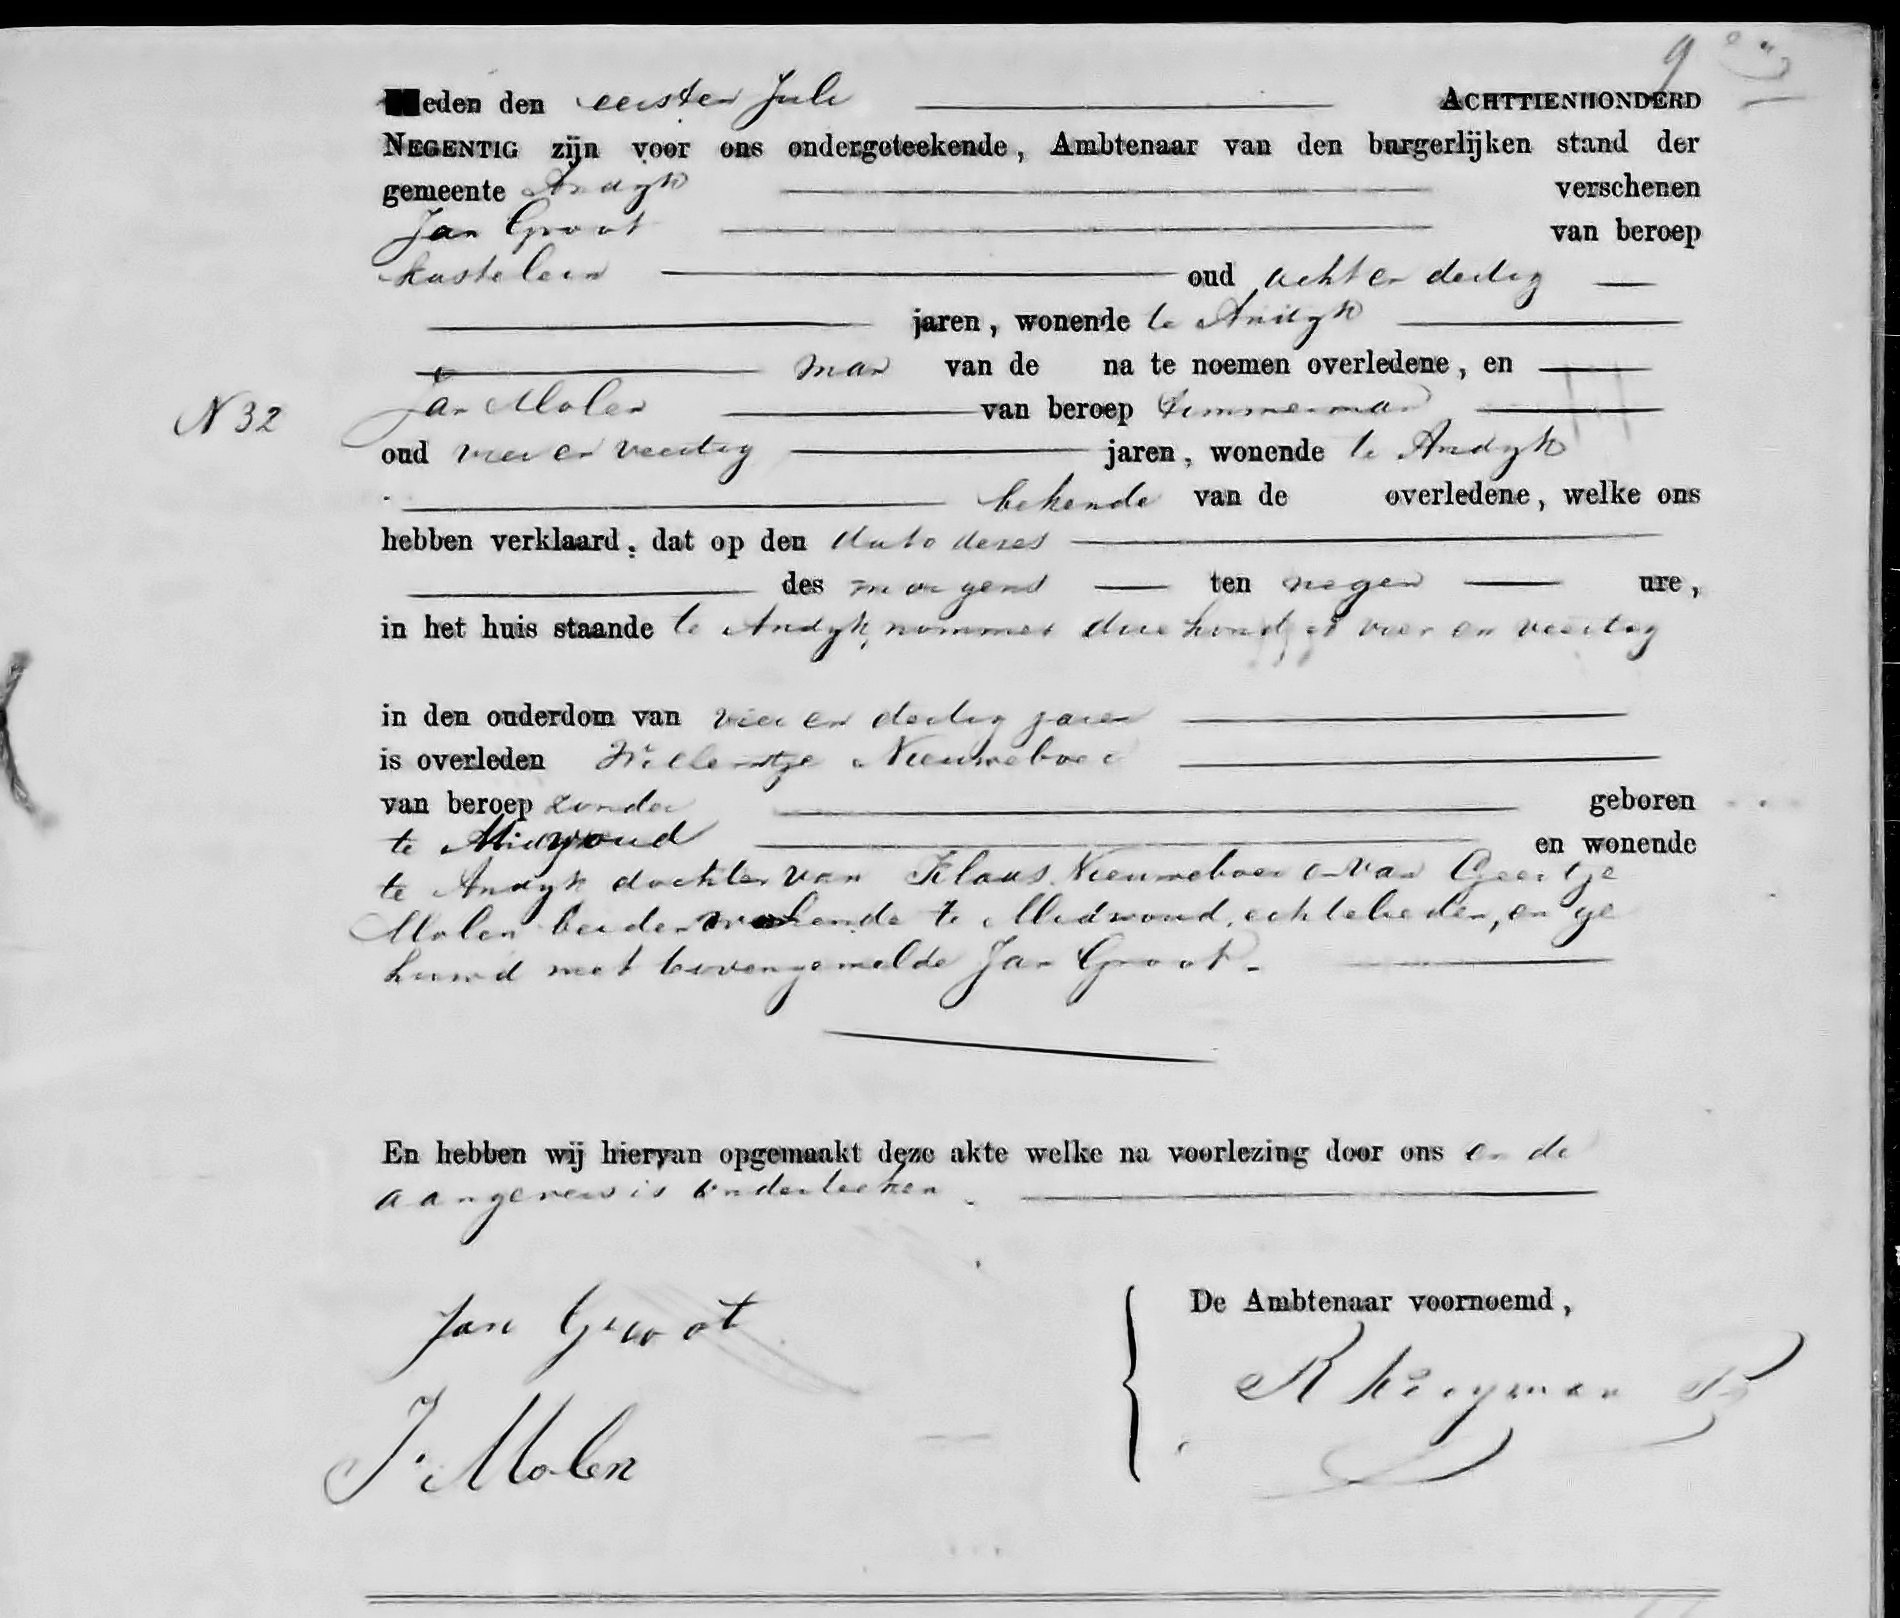 Heden den eersten Juli ACHTTIENHONDERD
NEGENTIG zijn voor ons ondergeteekende, Ambtenaar van den burgerlijken stand der
gemeente Andyk verschenen
Jan Groot van beroep
kastelein oud acht en dertig
jaren, wonende te Andyk
man van de na te noemen overledene, en
Jan Molen van beroep timmerman
N 32
oud vier en veertig jaren, wonende te Andyk
bekende van de overledene, welke ons
hebben verklaard, dat op den dato dezes
des morgens ten negen ure,
in het huis staande te Andyk, nommer drie honderd vier en veertig
in den ouderdom van vier en dertig jaren
is overleden Willemtje Nieuweboer
van beroep zonder geboren
te Midwoud en wonende
te Andyk dochter van Klaas Nieuweboer en van Geertje
Molen beiden wonende te Midwoud, echtelieden, en ge
huwd met bovengemelde Jan Groot.
En hebben wij hiervan opgemaakt deze akte welke na voorlezing door ons en de
aangevers is onderteekend.
De Ambtenaar voornoemd,
Jan Groot
J. Molen